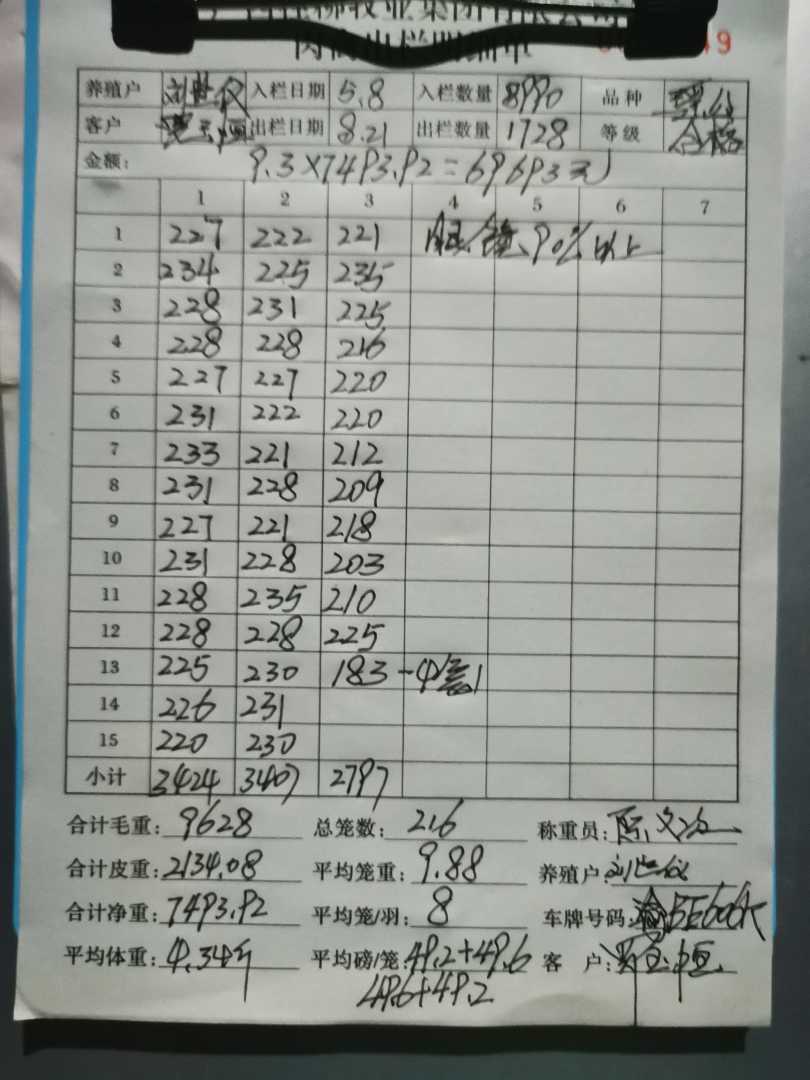 养殖户 刘世仪 入栏日期 5.8 入栏数量 8990 品种
客户 出栏日期 8.21 出栏数量 1728 等级 合格
金额: 9.3×7493.92=69693元
1 2 3 4 5 6 7
1 227 222 221 90%以上
2 234 225 235
3 228 231 225
4 228 228 216
5 227 227 220
6 231 222 220
7 233 221 212
8 231 228 209
9 227 221 218
10 231 228 203
11 228 235 210
12 228 228 225
13 225 230 183
14 226 231
15 220 230
小计 3424 3407 2797
合计毛重: 9628 总笼数: 216 称重员:
合计皮重: 2134.08 平均笼重: 9.88 养殖户: 刘世仪
合计净重: 7493.92 平均笼/羽: 8 车牌号码:
平均体重: 4.34斤 平均磅/笼: 49.2+49.6 客户:
49.6+49.2